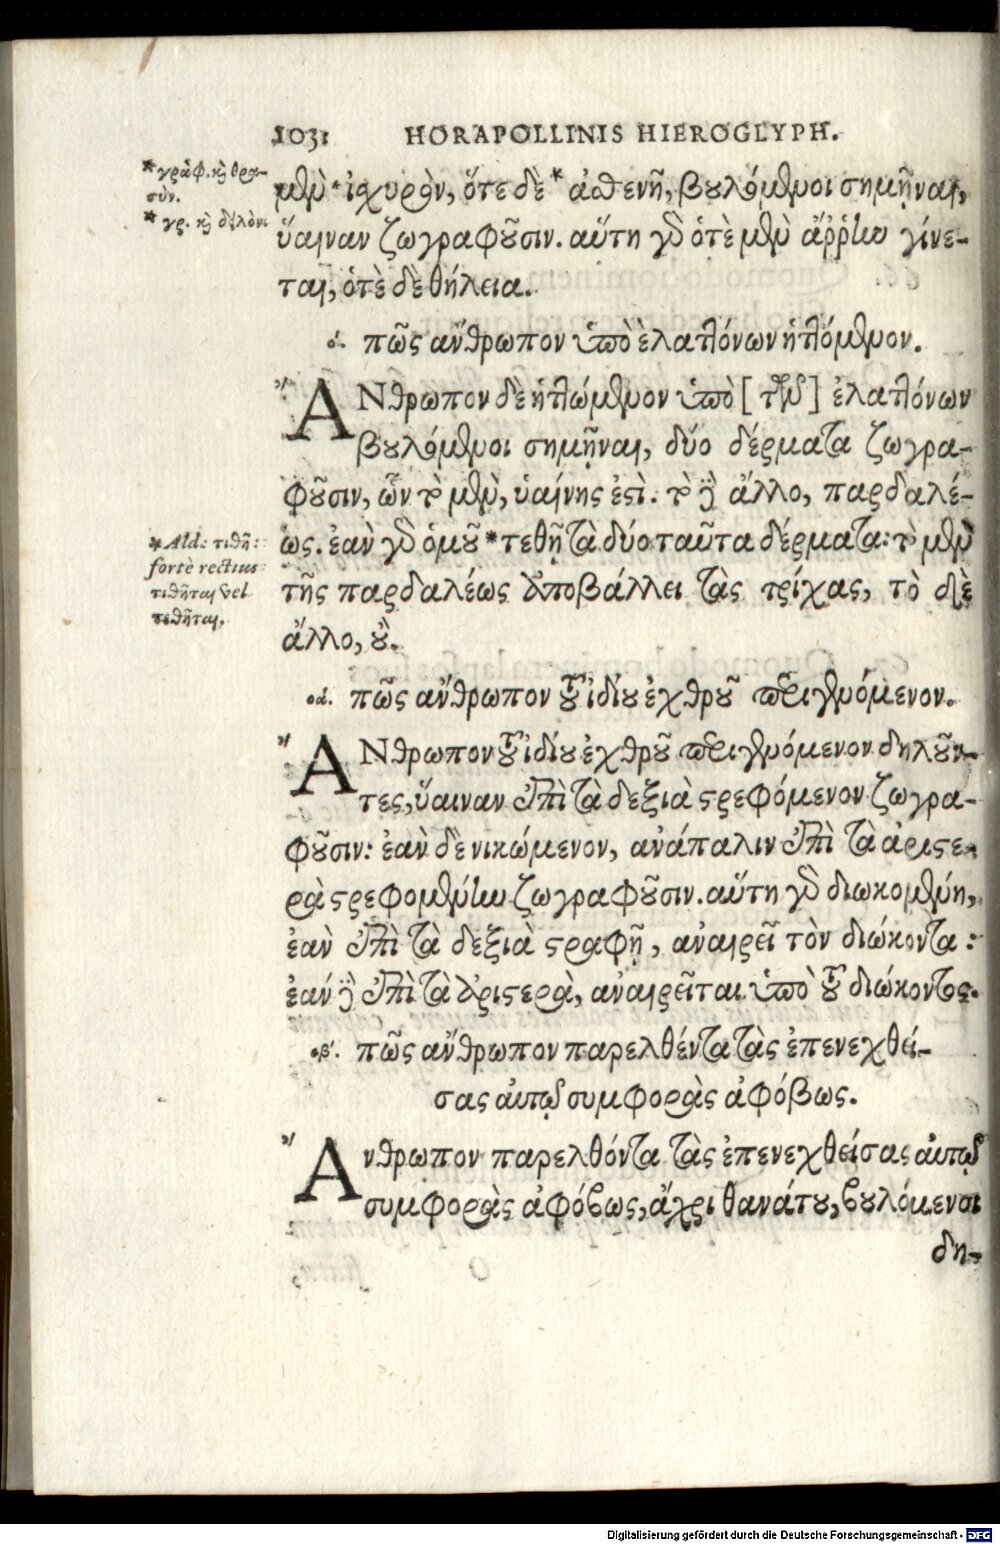 103. HORAPOLLINIS HIEROGLYPH.
*γράφ. κὶ θρα-
σύν.
* γρ. κὶ δειλόν.
μὲν *ἰχυρὸν, ὅτε δὲ * ἀσθενῆ, βουλόμενοι σημῆναι,
ὕαιναν ζωγραφοῦσιν. αὕτη γὸ ὁτὲ μὲν ἄῤῥην γίνε-
ται, ὁτὲ δὲ θήλεια.
ο. πῶς ἄνθρωπον ὑπὸ ἐλαττόνων ἡττόμενον.
ΑΝθρωπον δὲ ἡττώμενον ὑπὸ [τῶν] ἐλαττόνων
βουλόμενοι σημῆναι, δύο δέρματα ζωγρα-
φοῦσιν, ὧν τὸ μὲν, ὑαίνης ἐστὶ. τὸ δὲ ἄλλο, παρδαλέ-
ως. ἐὰν γὸ ὁμοῦ *τεθῇ τὰ δύο ταῦτα δέρματα: τὸ μὲν
τῆς παρδαλέως ἀποβάλλει τὰς τρίχας, τὸ δὲ
ἄλλο, οὔ.
*Ald: τιθῆ:
fortè rectius
τιθῆται vel
τεθῆται,
οα. πῶς ἄνθρωπον τοῦ ἰδίου ἐχθροῦ περιγενόμενον.
ΑΝθρωπον τοῦ ἰδίου ἐχθροῦ περιγενόμενον δηλοῦν-
τες, ὕαιναν ἐπὶ τὰ δεξιὰ στρεφόμενον ζωγρα-
φοῦσιν: ἐὰν δὲ νικώμενον, ἀνάπαλιν ἐπὶ τὰ ἀριστε-
ρὰ στρεφομένην ζωγραφοῦσιν. αὕτη γὸ διωκομένη,
ἐὰν ἐπὶ τὰ δεξιὰ στραφῇ, ἀναιρεῖ τὸν διώκοντα:
ἐὰν δὲ ἐπὶ τὰ ἀριστερὰ, ἀναιρεῖται ὑπὸ τοῦ διώκοντος.
οβ'. πῶς ἄνθρωπον παρελθέντα τὰς ἐπενεχθεί-
σας αὐτῷ συμφορὰς ἀφόβως.
Ανθρωπον παρελθόντα τὰς ἐπενεχθείσας αὐτῷ
συμφορὰς ἀφόβως, ἄχρι θανάτου, βουλόμενοι
δη-
Digitalisierung gefördert durch die Deutsche Forschungsgemeinschaft - DFG